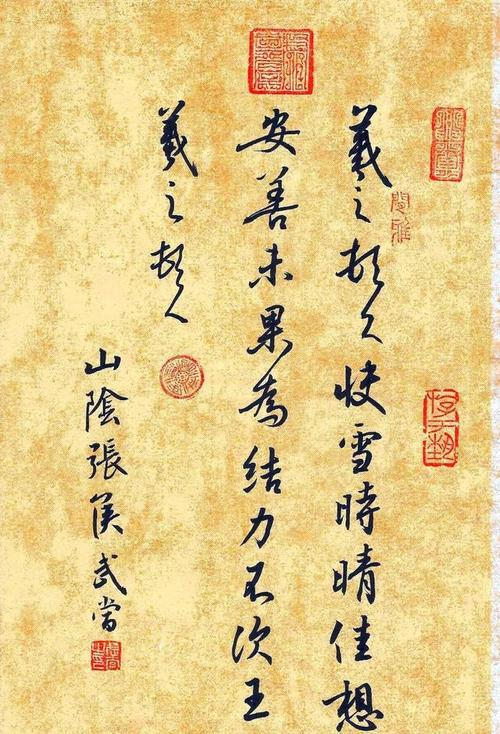 羲之頓首快雪時晴佳想
安善未果為結力不次王
羲之頓首
山陰張侯武當